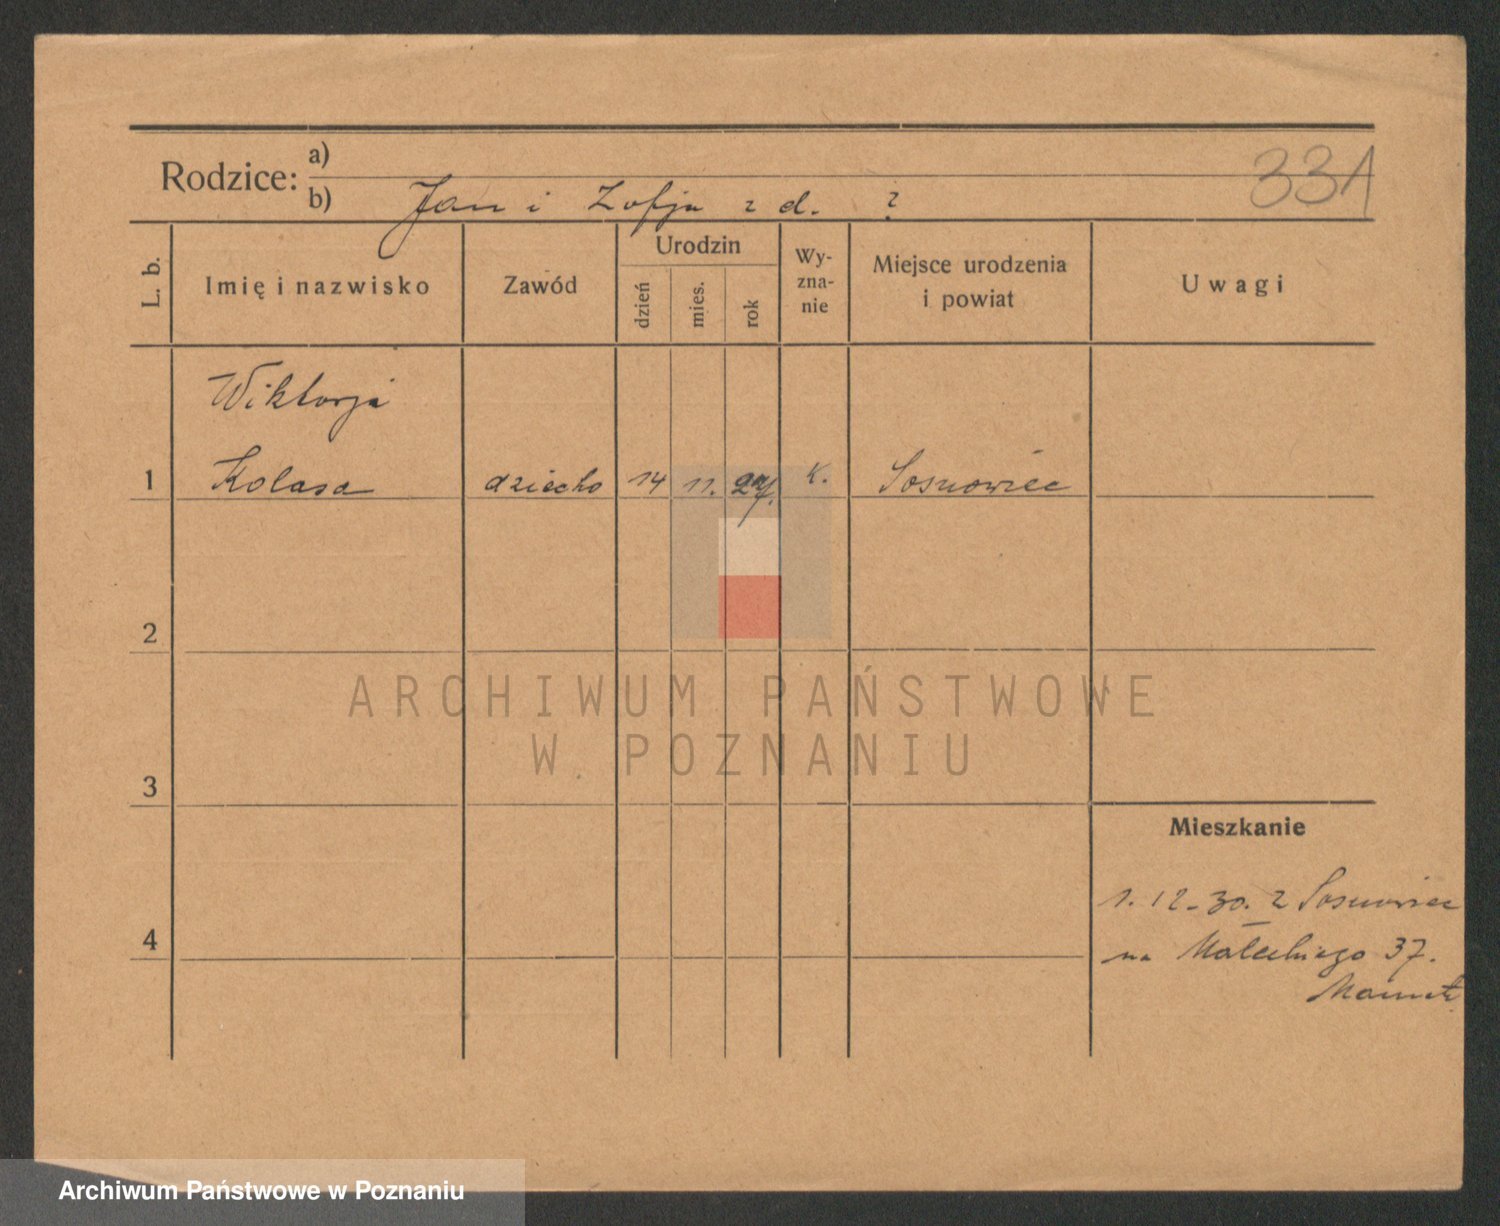 331
Rodzice: a)
b) Jan i Zofja z d. ?
L. b.
Imię i nazwisko
Zawód
Urodzin
dzień
mies.
rok
Wy-
zna-
nie
Miejsce urodzenia
i powiat
Uwagi
Wiktorja
1 Kolasa dziecko 14 11. 27. K. Sosnowiec
2
ARCHIWUM PAŃSTWOWE
W POZNANIU
3
Mieszkanie
1.12.30. z Sosnowiec
4
na Małeckiego 37.
Archiwum Państwowe w Poznaniu